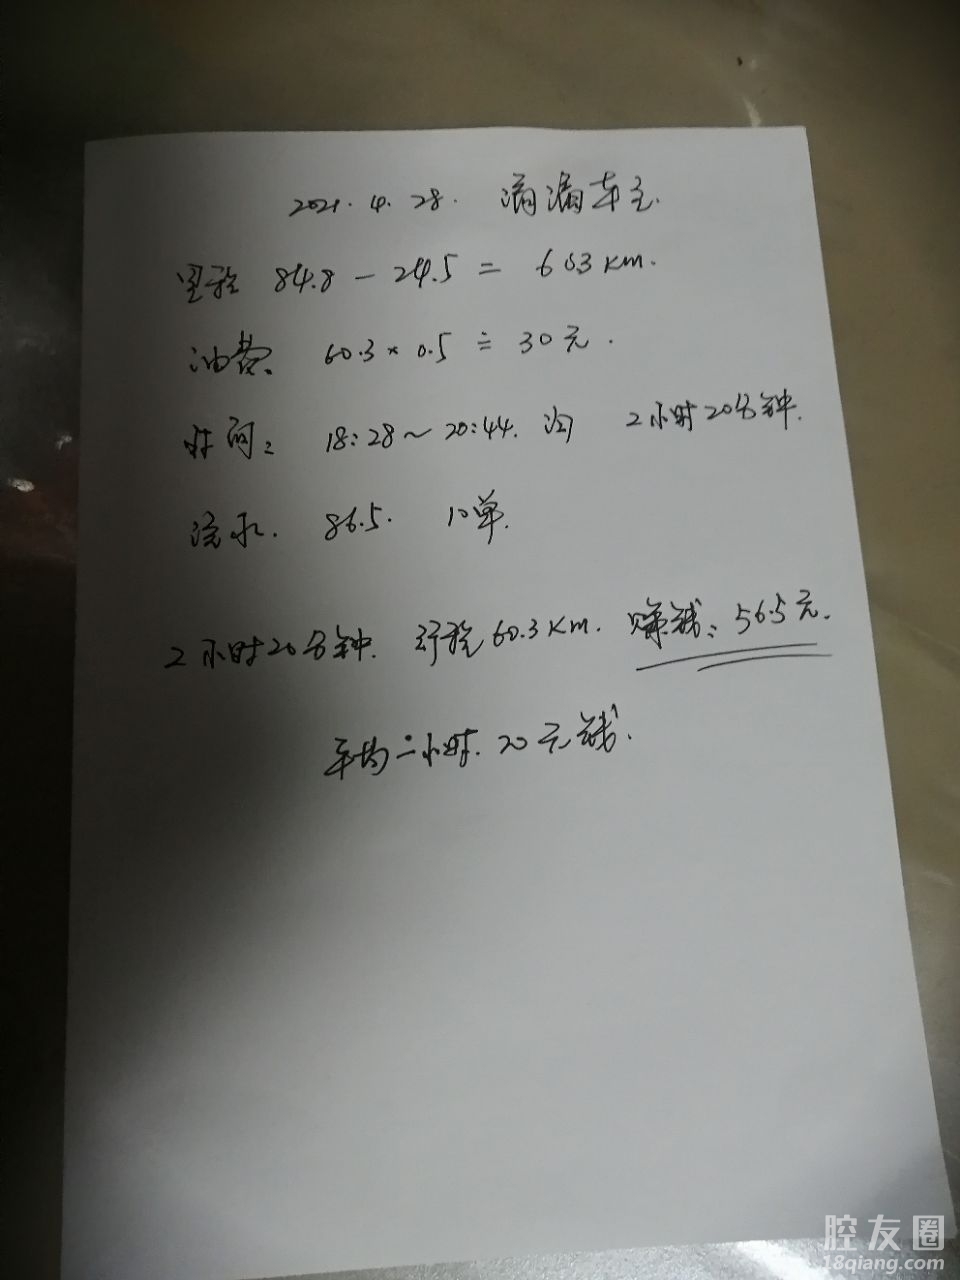 2021.4.28. 滴滴车主.
里程 84.8 - 24.5 = 60.3km.
油费. 60.3×0.5≐30元.
时间: 18:28~20:44. 约 2小时20分钟.
流水. 86.5. 10单.
2小时20分钟. 行程60.3km. 赚钱: 56.5元.
平均一小时. 20元钱.
腔友圈
18qiang.com